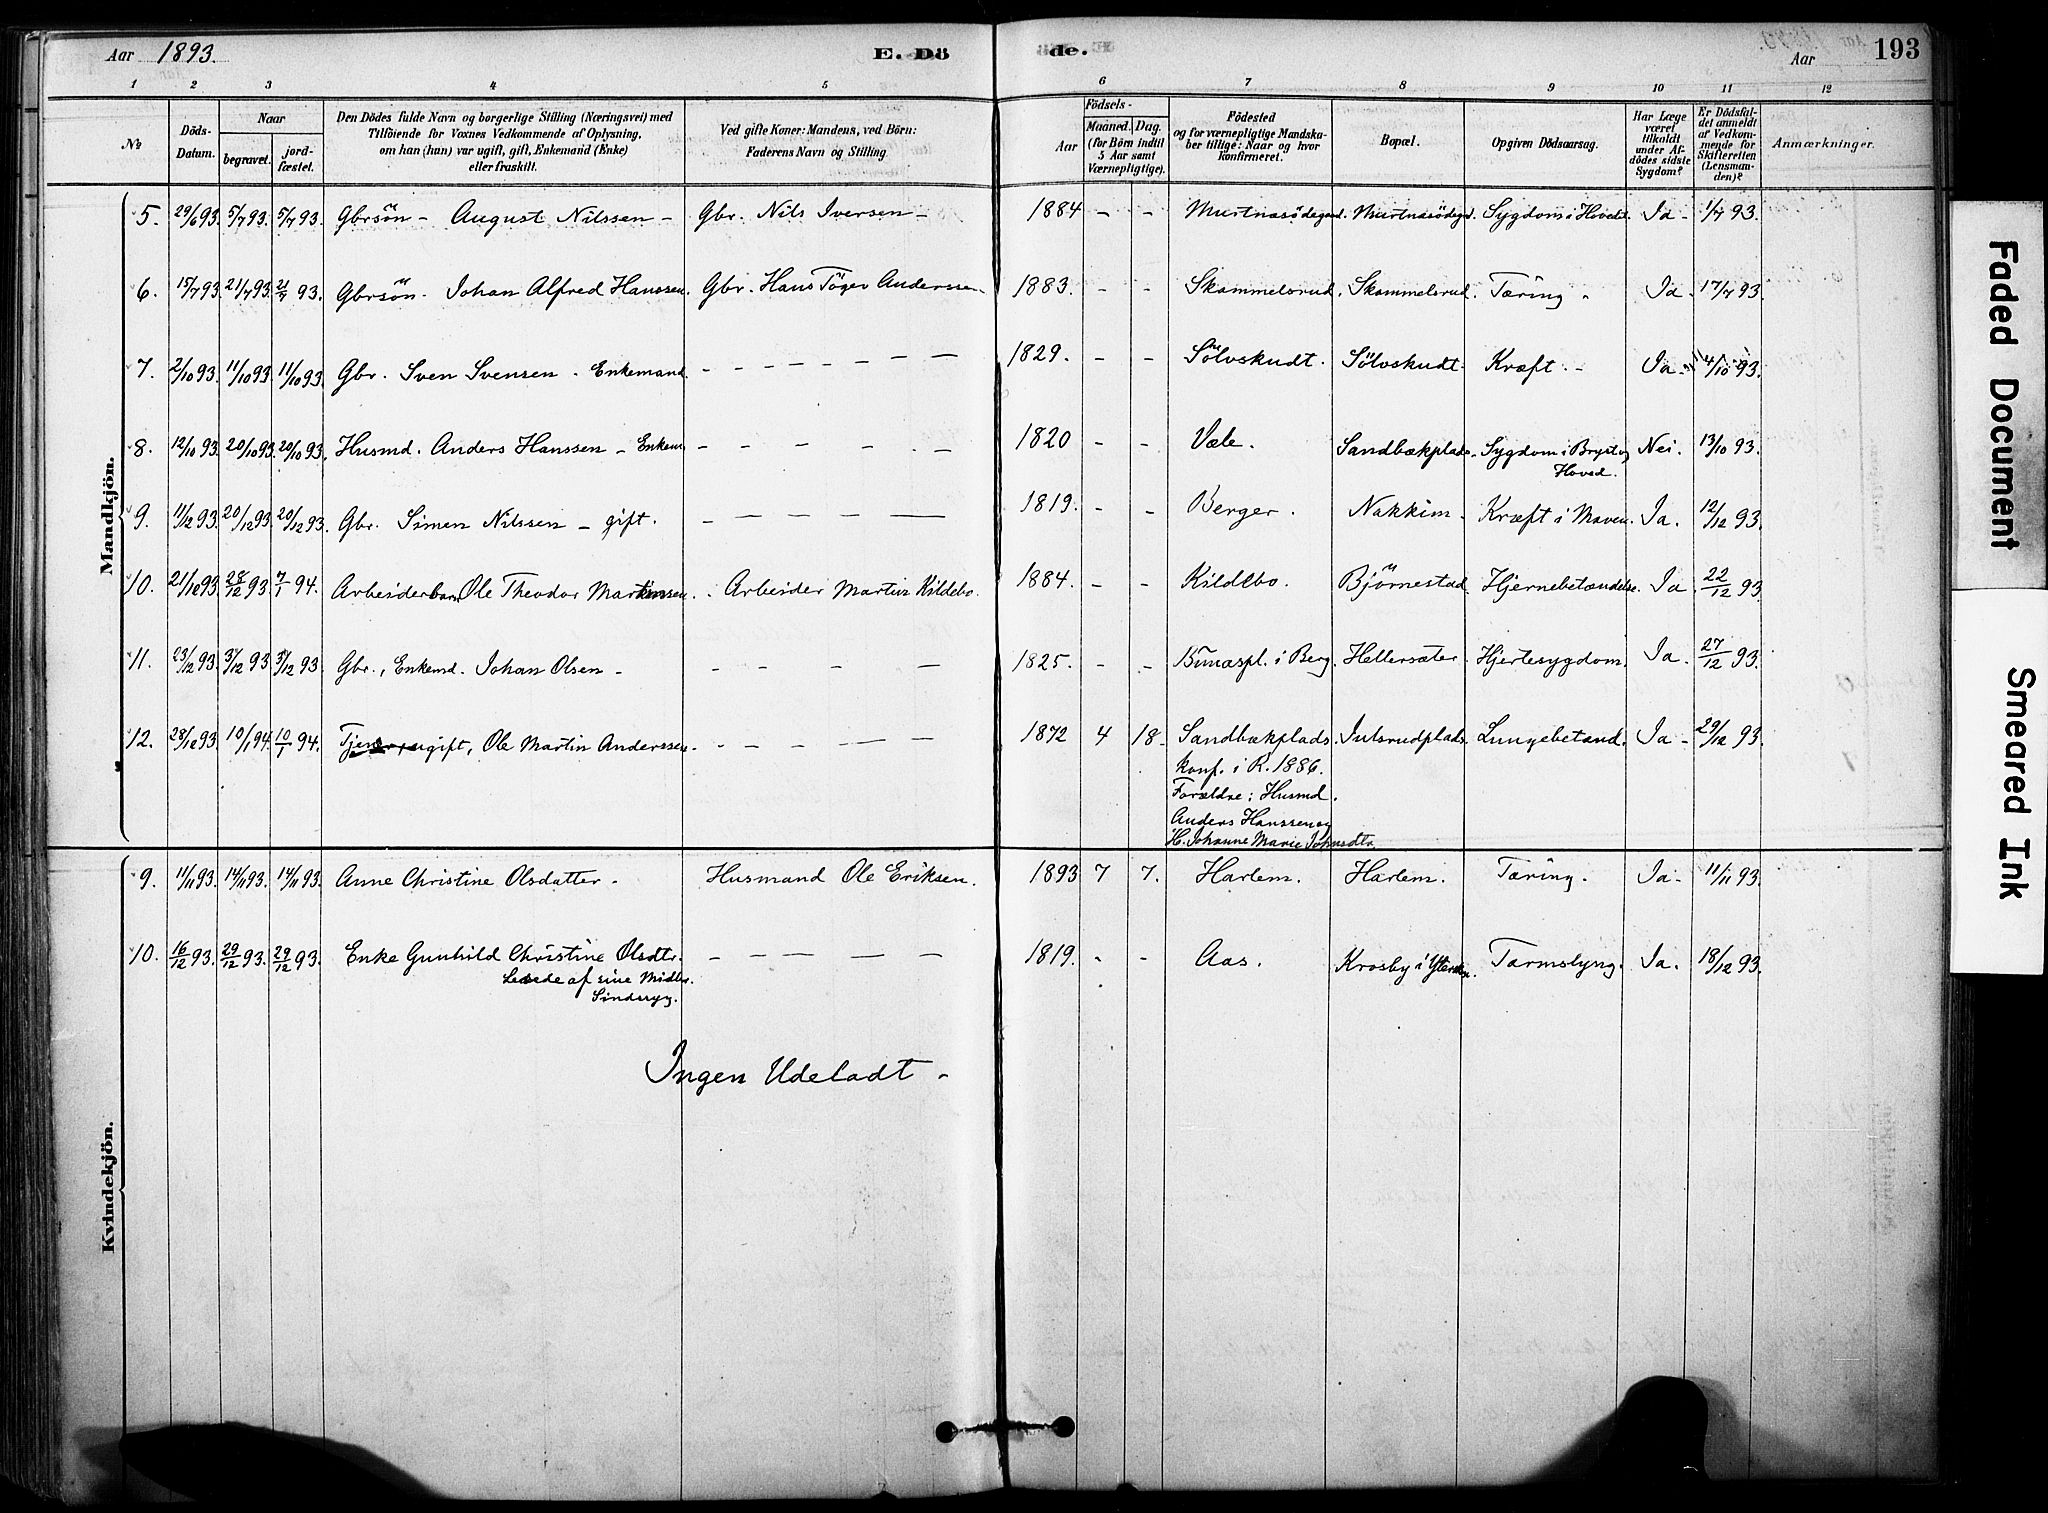 Aar 1893. E. Dö de. Aar 193
1 2 3 4 5 6 7 8 9 10 11 12
№ Döds-Datum. Naar begravet. jordfæstet. Den Dödes fulde Navn og borgerlige Stilling (Næringsvei) med Tilföiende for Voxnes Vedkommende af Oplysning, om han (hun) var ugift, gift, Enkemand (Enke) eller fraskilt. Ved gifte Koner: Mandens, ved Börn: Faderens Navn og Stilling. Födsels- Aar Maaned. Dag. (for Börn indtil 5 Aar samt Værnepligtige). Födested og for værnepligtige Mandskaber tillige: Naar og hvor konfirmeret. Bopæl. Opgiven Dödsaarsag. Har Læge været tilkaldt under Afdödes sidste Sygdom? Er Dödsfaldet anmeldt af Vedkommende for Skifteretten (Lensmanden)? Anmærkninger.
Mandkjön.
5. 29/6 93. 5/7 93. 5/7 93. Gbrsön - August Nilssen - Gbr. Nils Iversen - 1884 - - Murtnæsödegaard. Murtnæsödegd. Sygdom i Hovedet Ja - 1/7 93.
6. 15/7 93. 21/7 93. 21/7 93. Gbrsön. Johan Alfred Hanssen. Gbr. Hans Töger Andersen 1883. - - Skammelsrud. Skammelsrud. Tæring. Ja. 17/7 93.
7. 2/10 93. 11/10 93. 11/10 93. Gbr. Sven Svensen - Enkemand. - - - - - - - 1829. - - Sölvskudt. Sölvskudt. Kræft. - Ja - 4/10 93.
8. 12/10 93. 20/10 93. 20/10 93. Husmd. Anders Hanssen - Enkem. - - - - - 1820 - - Væle. Sandbækplads. Sygdom i Bryst og Nei. 13/10 93.
Hoved.
9. 11/12 93. 20/12 93. 20/12 93. Gbr. Simen Nilssen - gift. - - - - - - 1819. - - Berger. Nakkim. Kræft i Maven. Ja. 12/12 93.
10. 21/12 93. 28/12 93. 7/1 94. Arbeiderbarn, Ole Theodor Martinsen. Arbeider Martin Kildebo. 1884. - - Kildebo. Björnestad. Hjernebetændelse. Ja. 22/12 93.
11. 23/12 93. 31/12 93. 31/12 93. Gbr., Enkemd. Johan Olsen - - - - - - 1825. - - i Berg. Hellersæter. Hjertesygdom. Ja. 27/12 93.
12. 28/12 93. 10/1 94. 10/1 94. Tjener, ugift, Ole Martin Anderssen. - - - - - 1872 4 18. Sandbækplads. Julsrudplads. Lungebetænd. Ja - 29/12 93.
konf. i R. 1886.
Forældre: Husmd.
Anders Hanssen og
H. Johanne Marie Johnsdtr.
Kvindekjön.
9. 11/11 93. 14/11 93. 14/11 93. Anne Christine Olsdatter. Husmand Ole Eriksen. 1893 7 7. Harlem. Harlem. Tæring. Ja - 11/11 93.
10. 16/12 93. 29/12 93. 29/12 93. Enke Gunhild Christine Olsdtr. - - - - - 1819. - - Aas. Krosby i Tarmslyng. Ja. 18/12 93.
Levede af sine Midler.
Sindssyg.
Ingen Udeladt -
Faded Document
Smeared Ink